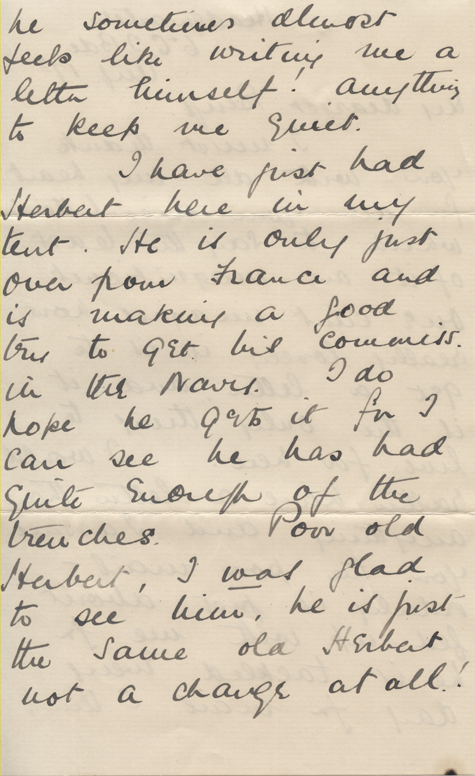 he sometimes almost
feels like writing me a
letter himself! anything
to keep me quiet.
I have just had
Herbert here in my
tent. He is only just
over from France and
is making a good
try to get his commiss.
in the Naves. I do
hope he gets it for I
can see he has had
quite enough of the
trenches. Poor old
Herbert, I was glad
to see him, he is just
the same old Herbert
not a change at all!